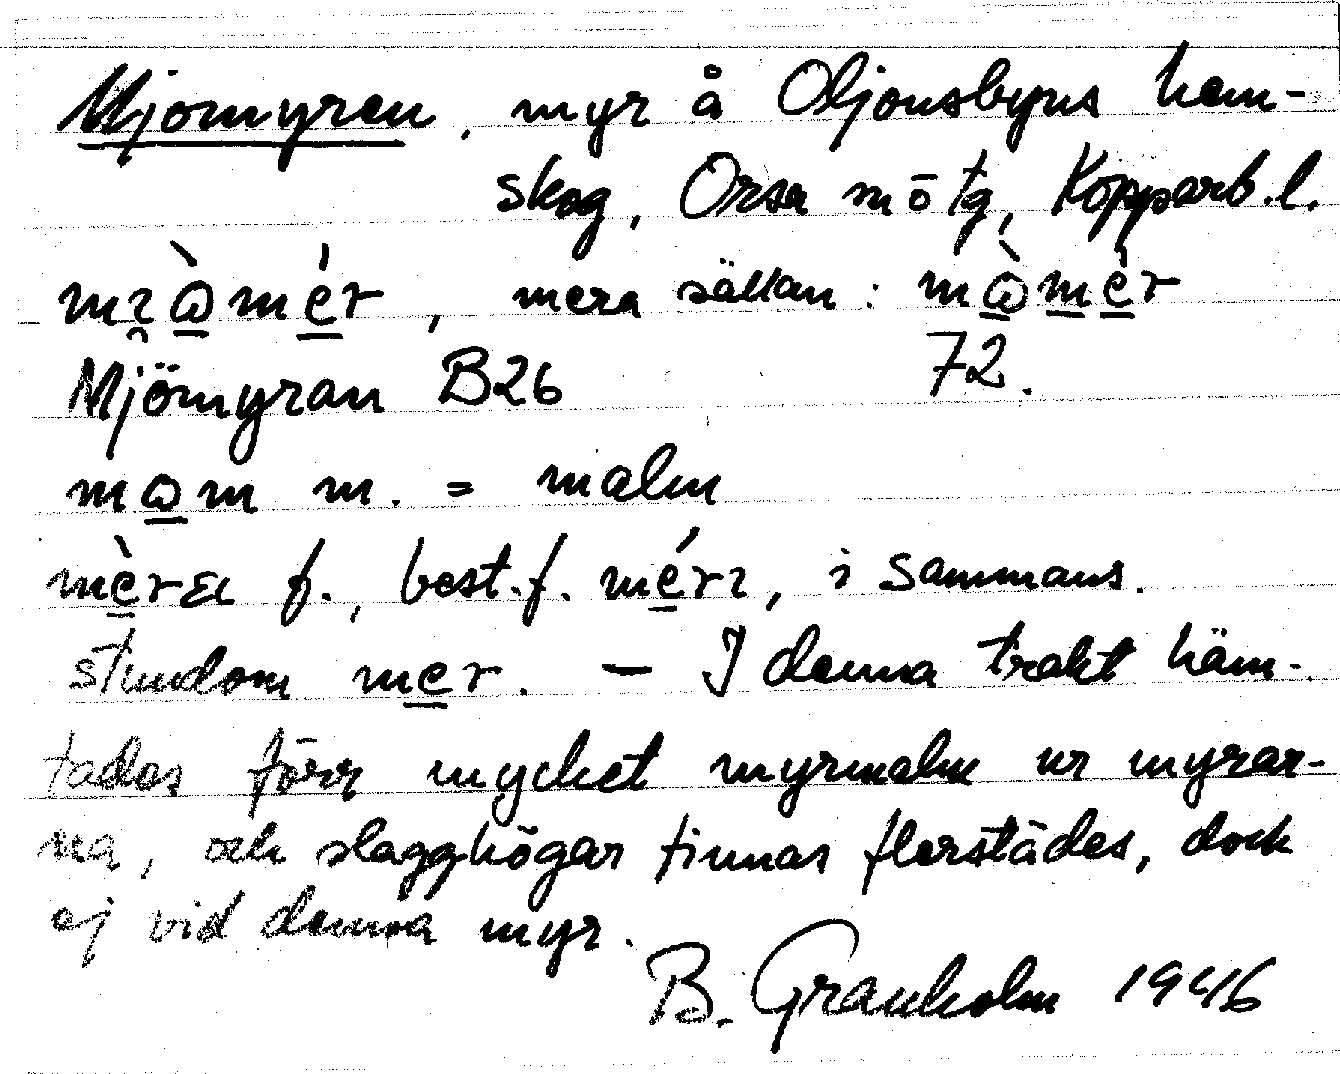 Mjomyren, myr å Oljonsbyns hem-
skog, Orsa m ō tg, Kopparb.l.
mɿ̯ɷ̀mér, mera sällan: mɷ̀mèr
Mjömyran B26 72.
mɷm m. = malm
mèrɛı f., best.f. mérɿ, i sammans.
stundom mer. — I denna trakt häm-
tades förr mycket myrmalm ur myrar-
na, och slagghögar finnas flerstädes, dock
ej vid denna myr.
B. Granholm 1946